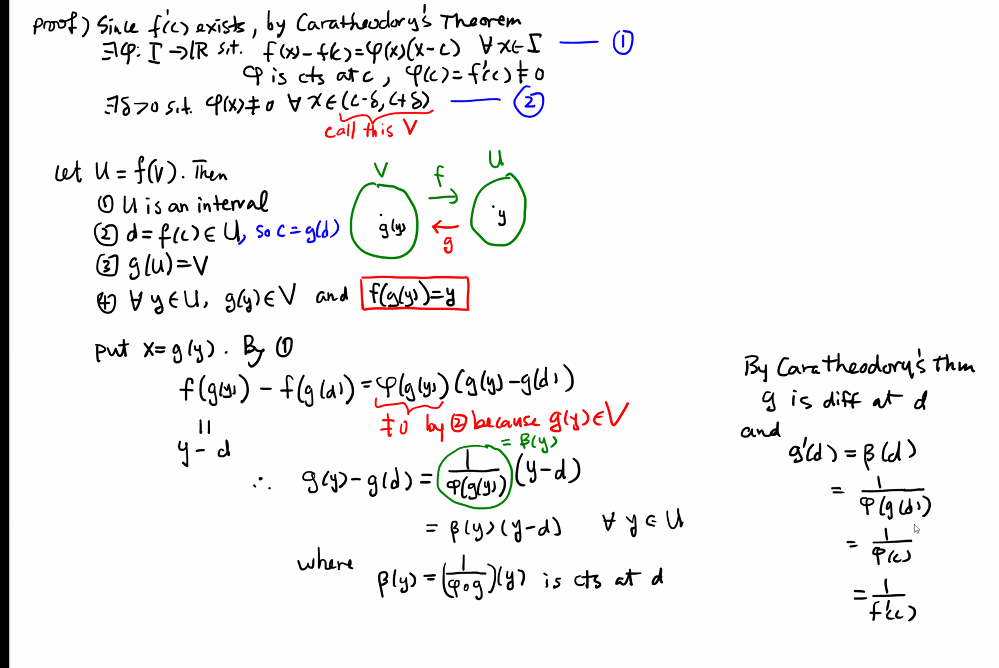 Proof) Since f'(c) exists, by Caratheodory's Theorem
∃φ: I → ℝ s.t. f(x)-f(c)=φ(x)(x-c) ∀x∈I — ①
φ is cts at c, φ(c)=f'(c)≠0
∃δ>0 s.t. φ(x)≠0 ∀x∈(c-δ, c+δ) — ②
call this V
Let U = f(V). Then
① U is an interval
② d=f(c)∈U, so c=g(d)
③ g(U)=V
④ ∀ y∈U, g(y)∈V and f(g(y))=y
V f U
g(y) g y
put x=g(y). By ①
f(g(y)) - f(g(d)) = φ(g(y))(g(y)-g(d))
≠0 by ② because g(y)∈V
|| 
y - d
= β(y)
∴ g(y)-g(d) = 1/φ(g(y)) (y-d)
= β(y)(y-d) ∀ y∈U
where β(y) = (1/φ∘g)(y) is cts at d
By Caratheodory's Thm
g is diff at d
and
g'(d) = β(d)
= 1/φ(g(d))
= 1/φ(c)
= 1/f'(c)